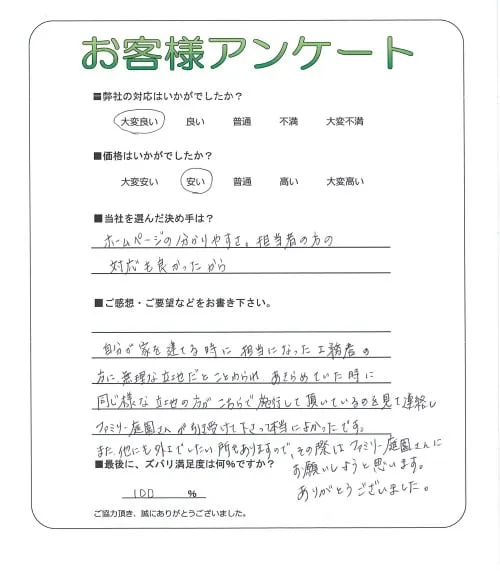 お客様アンケート
■弊社の対応はいかがでしたか？
大変良い 良い 普通 不満 大変不満
■価格はいかがでしたか？
大変安い 安い 普通 高い 大変高い
■当社を選んだ決め手は？
ホームページの分かりやすさ。担当者の方の
対応も良かったから
■ご感想・ご要望などをお書き下さい。
自分が家を建てる時に担当になった工務店の
方に無理な立地だとことわられ あきらめていた時に
同じ様な立地の方がこちらで施行して頂いているのを見て連絡し
ファミリー庭園さんが引き受けて下さって本当によかったです。
また、他にも外工でしたい所もありますので、その際はファミリー庭園さんに
お願いしようと思います。
ありがとうございました。
■最後に、ズバリ満足度は何%ですか？
100 %
ご協力頂き、誠にありがとうございました。